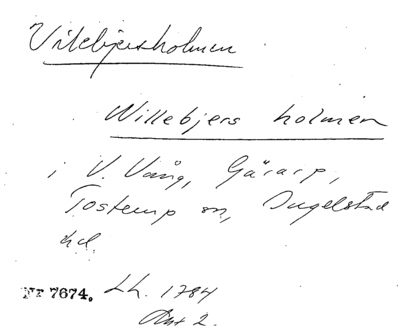 Vitebjersholmen
Willebjers holmen
i V. Vång, Gärarp,
Tosterup sn, Ingelstad
hd.
Nr 7674. Lh. 1784
Akt 2.